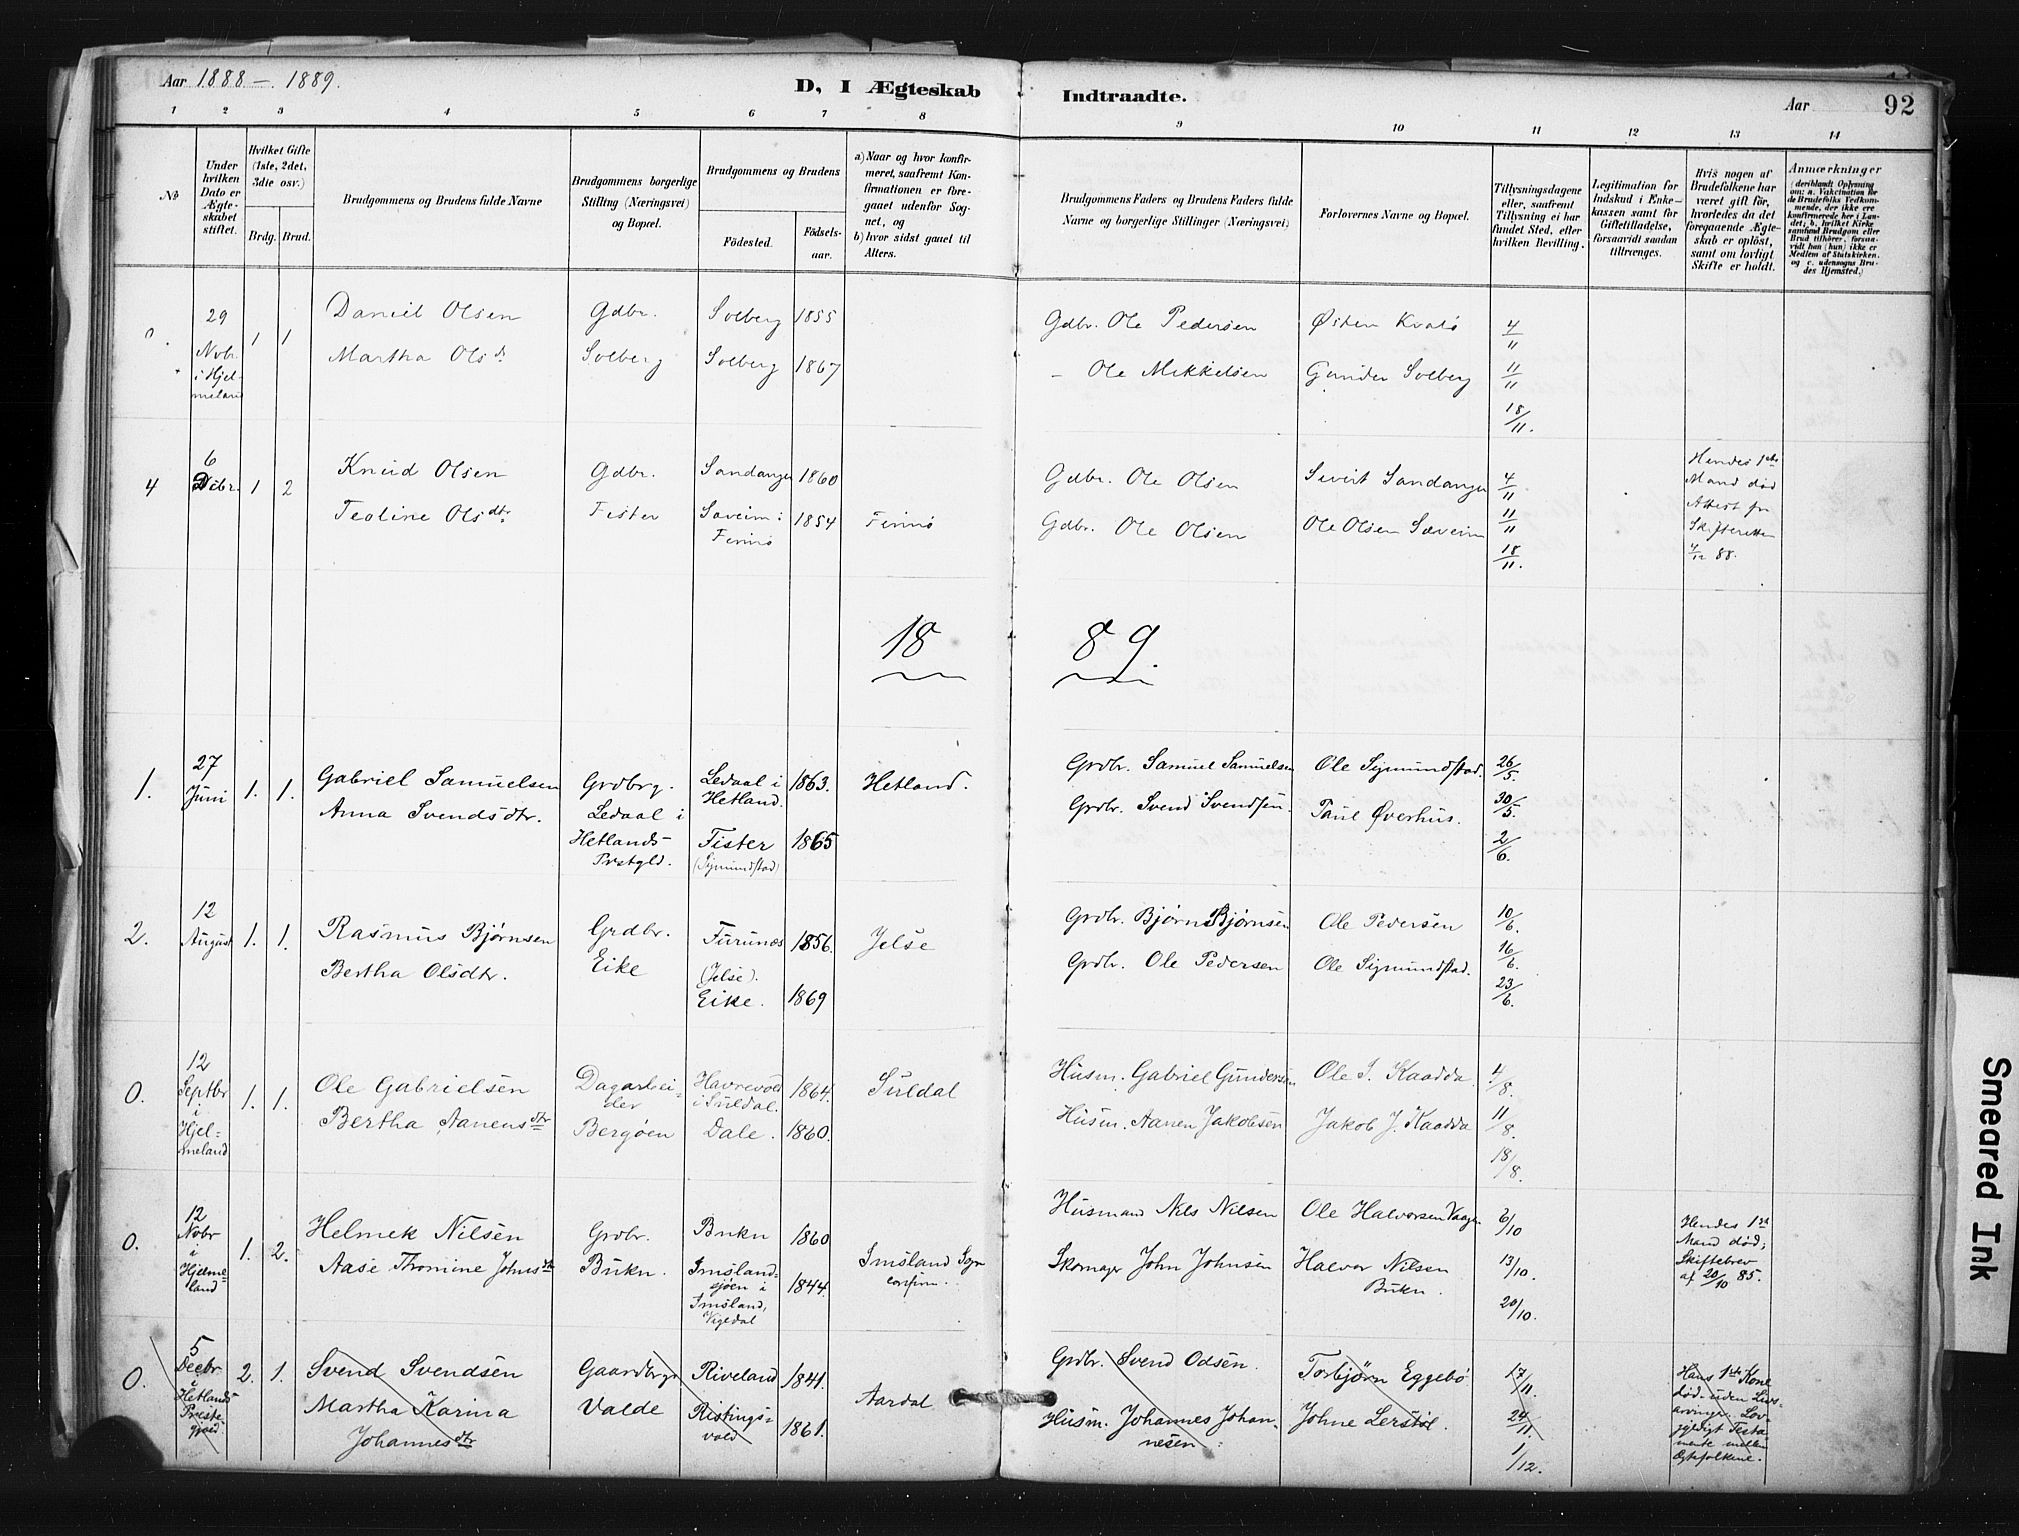 Aar 1888 – 1889.
D, I Ægteskab Indtraadte.
Aar
92
1 2 3 4 5 6 7 8 9 10 11 12 13 14
№
Under hvilken Dato er Ægteskabet stiftet.
Hvilket Gifte (1ste, 2det, 3die osv.)
Brdg. Brud.
Brudgommens og Brudens fulde Navne
Brudgommens borgerlige Stilling (Næringsvei) og Bopæl.
Brudgommens og Brudens
Födested.
Födsels-aar.
a) Naar og hvor konfirmeret, saafremt Konfirmationen er foregaaet udenfor Sognet, og
b) hvor sidst gaaet til Alters.
Brudgommens Faders og Brudens Faders fulde Navne og borgerlige Stillinger (Næringsvei)
Forlovernes Navne og Bopæl.
Tillysningsdagene eller, saafremt Tillysning ei har fundet Sted, efter hvilken Bevilling.
Legitimation for Indskud i Enkekassen samt for Giftetilladelse, forsaavidt saadan tiltrænges.
Hvis nogen af Brudefolkene har været gift för, hvorledes da det foregaaende Ægteskab er oplöst, samt om lovligt Skifte er holdt.
Anmærkninger
(deriblandt Oplysning om: a. Vakcination for de Brudefolks Vedkommende, der ikke ere konfirmerede her i Landet; b. hvilket Kirkesamfund Brudgom eller Brud tilhörer, forsaavidt han (hun) ikke er Medlem af Statskirken, og c. udensogns Brudes Hjemsted.)
0. 29 Novbr. i Hjelmeland 1 1
Daniel Olsen Gdbr. Solberg 1855 Gdbr. Ole Pedersen Østen Kvalø 4/11
Martha Olsdr Solberg Solberg 1867 – Ole Mikkelsen Gunder Solberg 11/11
18/11.
4 6 Debr. 1 2
Knud Olsen Gdbr. Sandanger 1860 Gdbr. Ole Olsen Sivert Sandanger 4/11
Teoline Olsdtr. Fister Sæveim i Finnø 1854 Finnø Gdbr. Ole Olsen Ole Olsen Sæveim 11/11
18/11.
Hendes 1ste
Mand död
Attest fr
Skifteretten
4/12 88.
18 89.
1. 27 Juni 1. 1.
Gabriel Samuelsen Grdbrg. Ledaal i Hetland. 1863. Hetland. Grdbr. Samuel Samuelsen Ole Sigmundstad. 26/5.
Anna Svendsdtr. Ledaal i Hetlands Prstgld. Fister (Sigmundstad) 1865 Grdbr. Svend Svendsen. Paul Øverhus. 30/5.
2/6.
2. 12 August 1. 1.
Rasmus Bjørnsen Grdbr. Furunæs (Jelse). 1856. Jelse Grdbr. Bjørn Bjørnsen Ole Pedersen 10/6.
Bertha Olsdtr. Eike Eike. 1869 Grdbr. Ole Pedersen Ole Sigmundstad. 16/6.
23/6.
0. 12 Septbr i Hjelmeland 1. 1.
Ole Gabrielsen Dagarbeider Havrevold i Suldal. 1864. Suldal Husm. Gabriel Gundersen Ole J. Kaadda. 4/8.
Bertha Aanensdtr Bergøen Dale. 1860. Husm. Aanen Jakobsen Jakob J. Kaadda 11/8.
18/8.
0. 12 Novbr i Hjelmeland 1. 2.
Helmek Nilsen Grdbr. Bukn 1860 Husmand Nils Nilsen Ole Halvorsen Vaagen 6/10
Aase Thomine Johnsdtr Bukn. Imslandsjøen i Imsland, Vigedal 1844. Imsland Sogn confirm. Skomager John Johnsen Halvor Nilsen Bukn. 13/10.
20/10.
Hendes 1ste
Mand død;
Skiftebrev
af 20/10 85.
0. 5 Decbr i Hetlands Prestegjæld. 2. 1.
Svend Svendsen Gaardbrgr Riveland 1841. Aardal Grdbr. Svend Odsen. Torbjørn Eggebø 17/11.
Martha Karina Johannesdtr Valde Ristingsvold 1861. Husm. Johannes Johannesen. Johne Lerstøl. 24/11.
1/12.
Hans 1ste Kone
død uden Livs-
arvinger. Lov-
gyldigt Testa-
mente mellem
Egtefolkene.
Smeared Ink